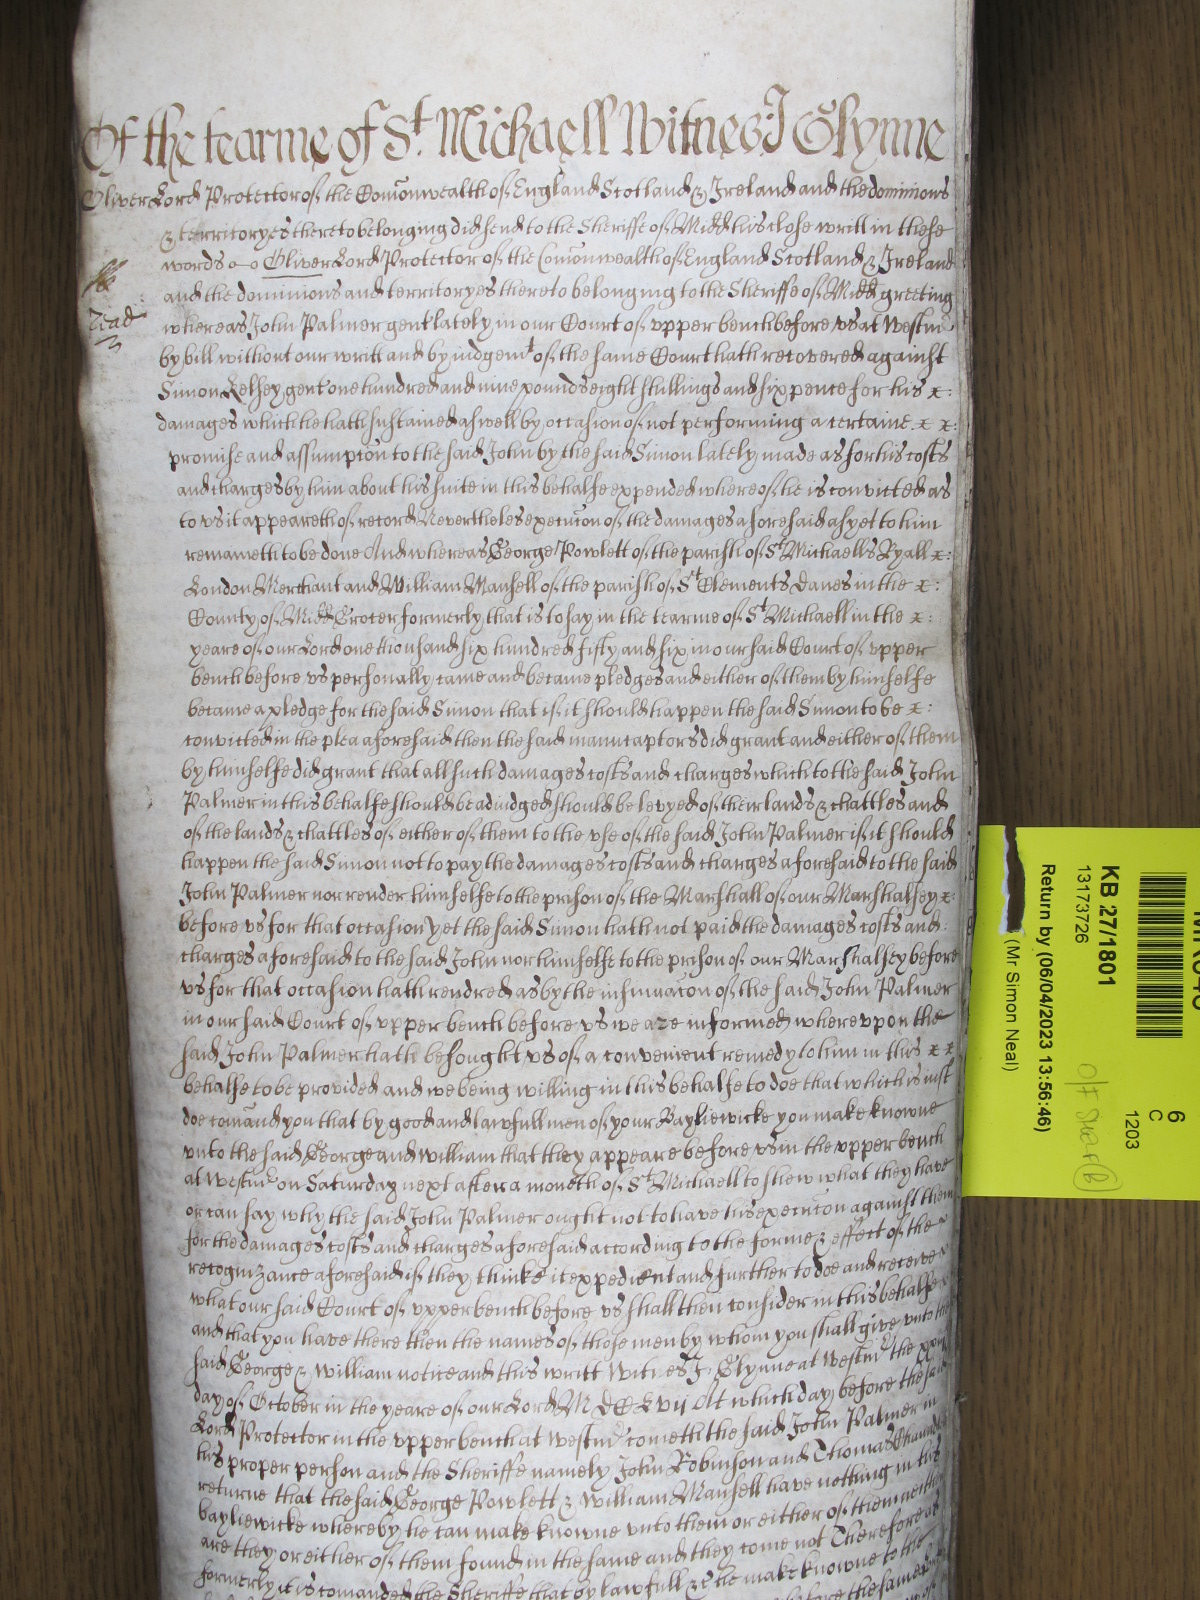 Of the tearme of St. Michaell Witnes J Glynne
Oliver Lord Protector of the Comonwealth of England Scotland & Ireland and the dominions
& territoryes thereto belonging did send to the Sheriffe of Midd his close writt in these
words Oliver Lord Protector of the Comonwealth of England Scotland & Ireland
and the dominions and territoryes thereto belonging to the Sheriffe of Midd greeting
whereas John Palmer gent lately in our Court of vpper bench before vs at Westmr
by bill without our writt and by iudgemt of the same Court hath recovered against
Simon Kelsey gent one hundred and nine pounds eight shillings and six pence for his x:
damages which he hath sustained aswell by occasion of not performing a certaine x x:
promise and assumpcon to the said John by the said Simon lately made as for his costs
and charges by him about his suite in this behalfe expended whereof he is convicted as
to vs it appeareth of record Nevertheles execucon of the damages aforesaid as yet to him
remaineth to be done And whereas George Powlett of the parish of St Michaells Ryall x:
London Merchant and William Mansell of the parish of St Clements Danes in the x:
County of Midd Grocer formerly that is to say in the tearme of St Michaell in the x:
yeare of our Lord one thousand six hundred fifty and six in our said Court of vpper
bench before vs personally came and became pledges and either of them by himselfe
became a pledge for the said Simon that if it should happen the said Simon to be x:
convicted in the plea aforesaid then the said manucaptors did grant and either of them
by himselfe did grant that all such damages costs and charges which to the said John
Palmer in this behalfe should be adiudged should be levyed of their lands & chattles and
of the lands & chattles of either of them to the vse of the said John Palmer if it should
happen the said Simon not to pay the damages costs and charges aforesaid to the said
John Palmer nor render himselfe to the prison of the Marshall of our Marshalsey x:
before vs for that occasion Yet the said Simon hath not paid the damages costs and
charges aforesaid to the said John nor himselfe to the prison of our Marshalsey before
vs for that occasion hath rendred as by the insinuacon of the said John Palmer
in our said Court of vpper bench before vs we are informed wherevpon the
said John Palmer hath besought vs of a convenient remedy to him in this x x
behalfe to be provided and we being willing in this behalfe to doe that which is iust
doe comand you that by good and lawfull men of your Bayliewicke you make knowne
vnto the said George and William that they appeare before vs in the vpper bench
at Westmr on Saturday next after a moneth of St Michaell to shew what they have
or can say why the said John Palmer ought not to have his execucon against them
for the damages costs and charges aforesaid according to the forme & effect of the
recognizance aforesaid if they thinke it expedient and further to doe and receive
what our said Court of vpper bench before vs shall then consider in this behalfe
and that you have there then the names of those men by whom you shall give vnto the
said George & William notice and this writt Witnes J Glynne at Westmr the
day of October in the yeare of our Lord MDCLvij At which day before the said
Lord Protector in the vpper bench at Westmr cometh the said John Palmer in
his proper person and the Sheriffe namely John Robinson and Thomas
returne that the said George Powlett & William Mansell have nothing in his
bayliewicke whereby he can make knowne vnto them or either of them neither
are they or either of them found in the same and they come not Therefore as
formerly it is comanded the Sheriffe that by lawfull &c he make knowne to the
before the same
KB 27/1801
13173726
Return by (06/04/2023 13:56:46)
(Mr Simon Neal)
6
C
1203